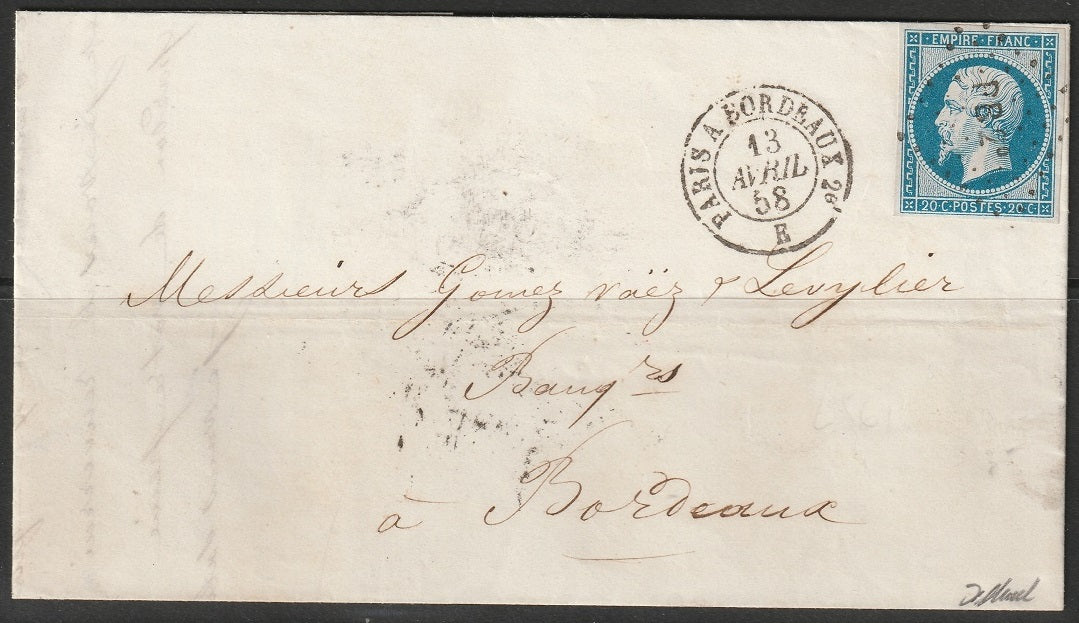 EMPIRE·FRANC·
20·C·POSTES·20·C·
PARIS A BORDEAUX 2º
13
AVRIL
58
E
Messieurs Gomez Vaëz & Levylier
Banqrs
à Bordeaux